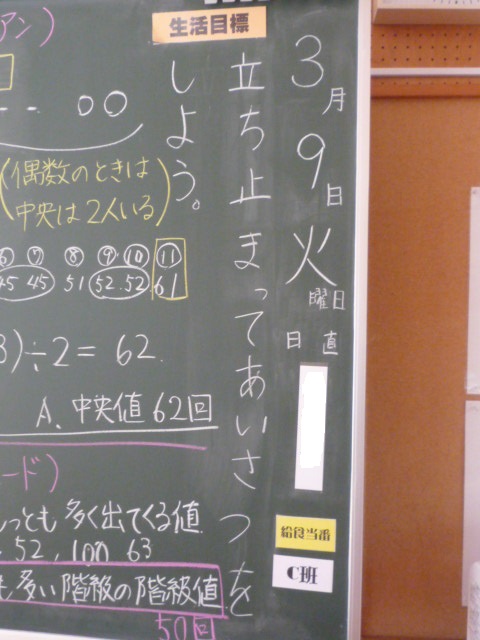 3月9日火曜日
日直
給食当番
C班
生活目標
立ち止まってあいさつを
しよう。
アン)
(偶数のときは
中央は2人いる)
⑦ ⑧ ⑨ ⑩ ⑪
45 45 51 52.52 61
)÷2=62.
A. 中央値 62回
ード)
っとも多く出てくる値
52, 100 63
多い階級の階級値
50回